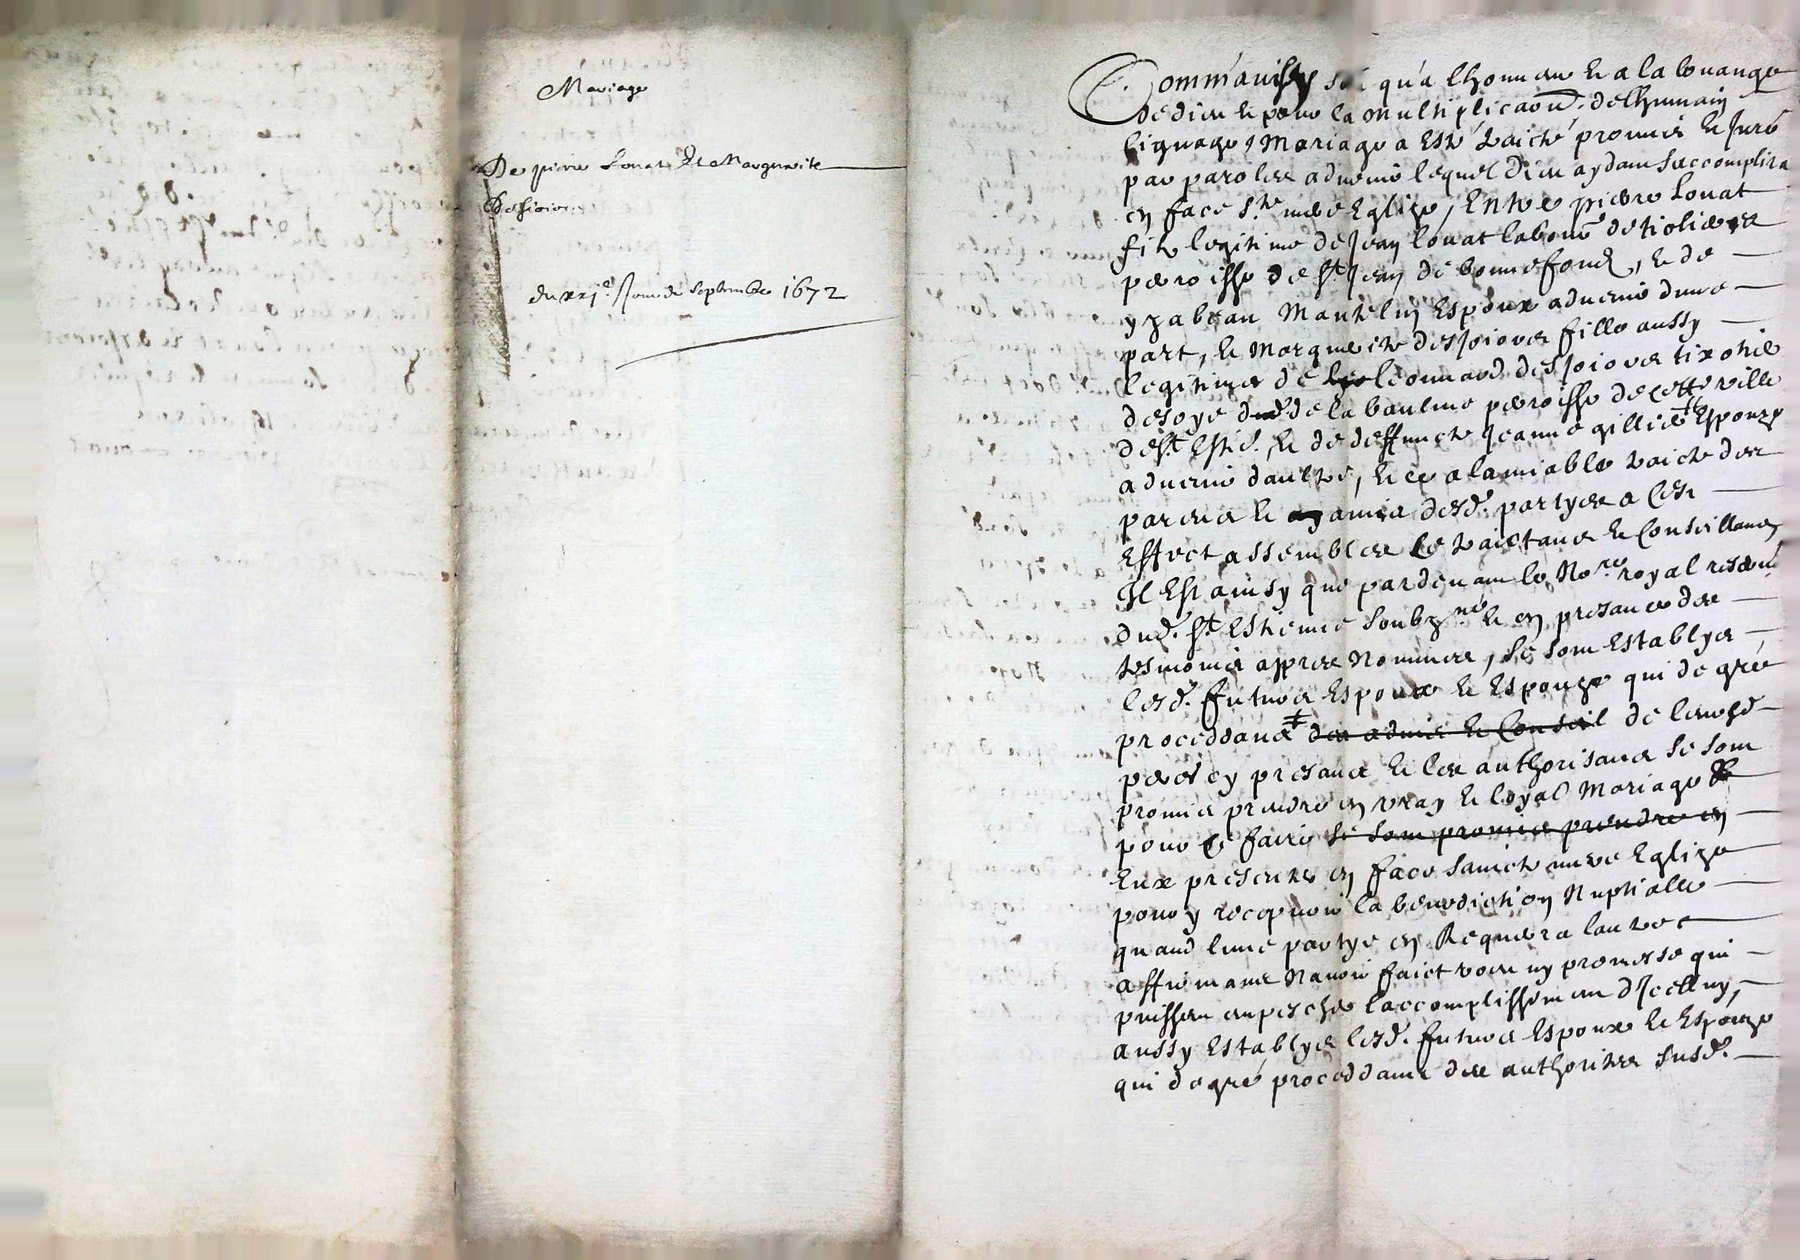 Mariage
De pierre Louat Et Marguerite
Despioires
du xxje Jour de Septembre 1672
Comm'ainsy soi qu'a lhonneur Et a la louange
de dieu Et pour la multiplicaon de lhumain
lignage, Mariage a Esté traicté promis Et Juré
par parolles advenir lequel dieu aydant saccomplira
en face Ste mere Eglize, Entre pierre Louat
filz legitime de Jean louat labour de tiolieres
parroisse de St Jean de bonnefond, Et de
yzabeau Mantelin Espoux advenir dune
part, Et Marguerite despioires fille aussy
legitime de leonnard despioires tixotier
de soye de la baulme parroisse de cette ville
de St Este. Et de deffuncte Jeanne gillier Espouze
advenir daultre, Et ce a lamiable traicté des
parens Et amis desd. partyes a cest
Effect assembles Ce traictans Et Conseillans
Il Est ainsy que pardevant le Nore royal reservé
dud. St Estienne soubzné Et en presance des
tesmoins appres Nommes, se sont Establys
lesd. futurs Espoux Et Espouze qui de gré
proceddans des advis Et Conseil de leursd
peres cy presans Et les authorisans se sont
promis prendre en vray Et loyal Mariage Et
pour ce faire se sont promis prendre en
Eux presenter en face saincte mere Eglize
pour y recepvoir la benediction Nuptialle
quand lune partye en Requerra lautre
affirmans Navoir faict voeu ny promesse qui
puissent empescher laccomplissement dJcelluy,
aussy Establys lesd. futurs Espoux Et Espouze
qui de gré proceddans des authorites susd.